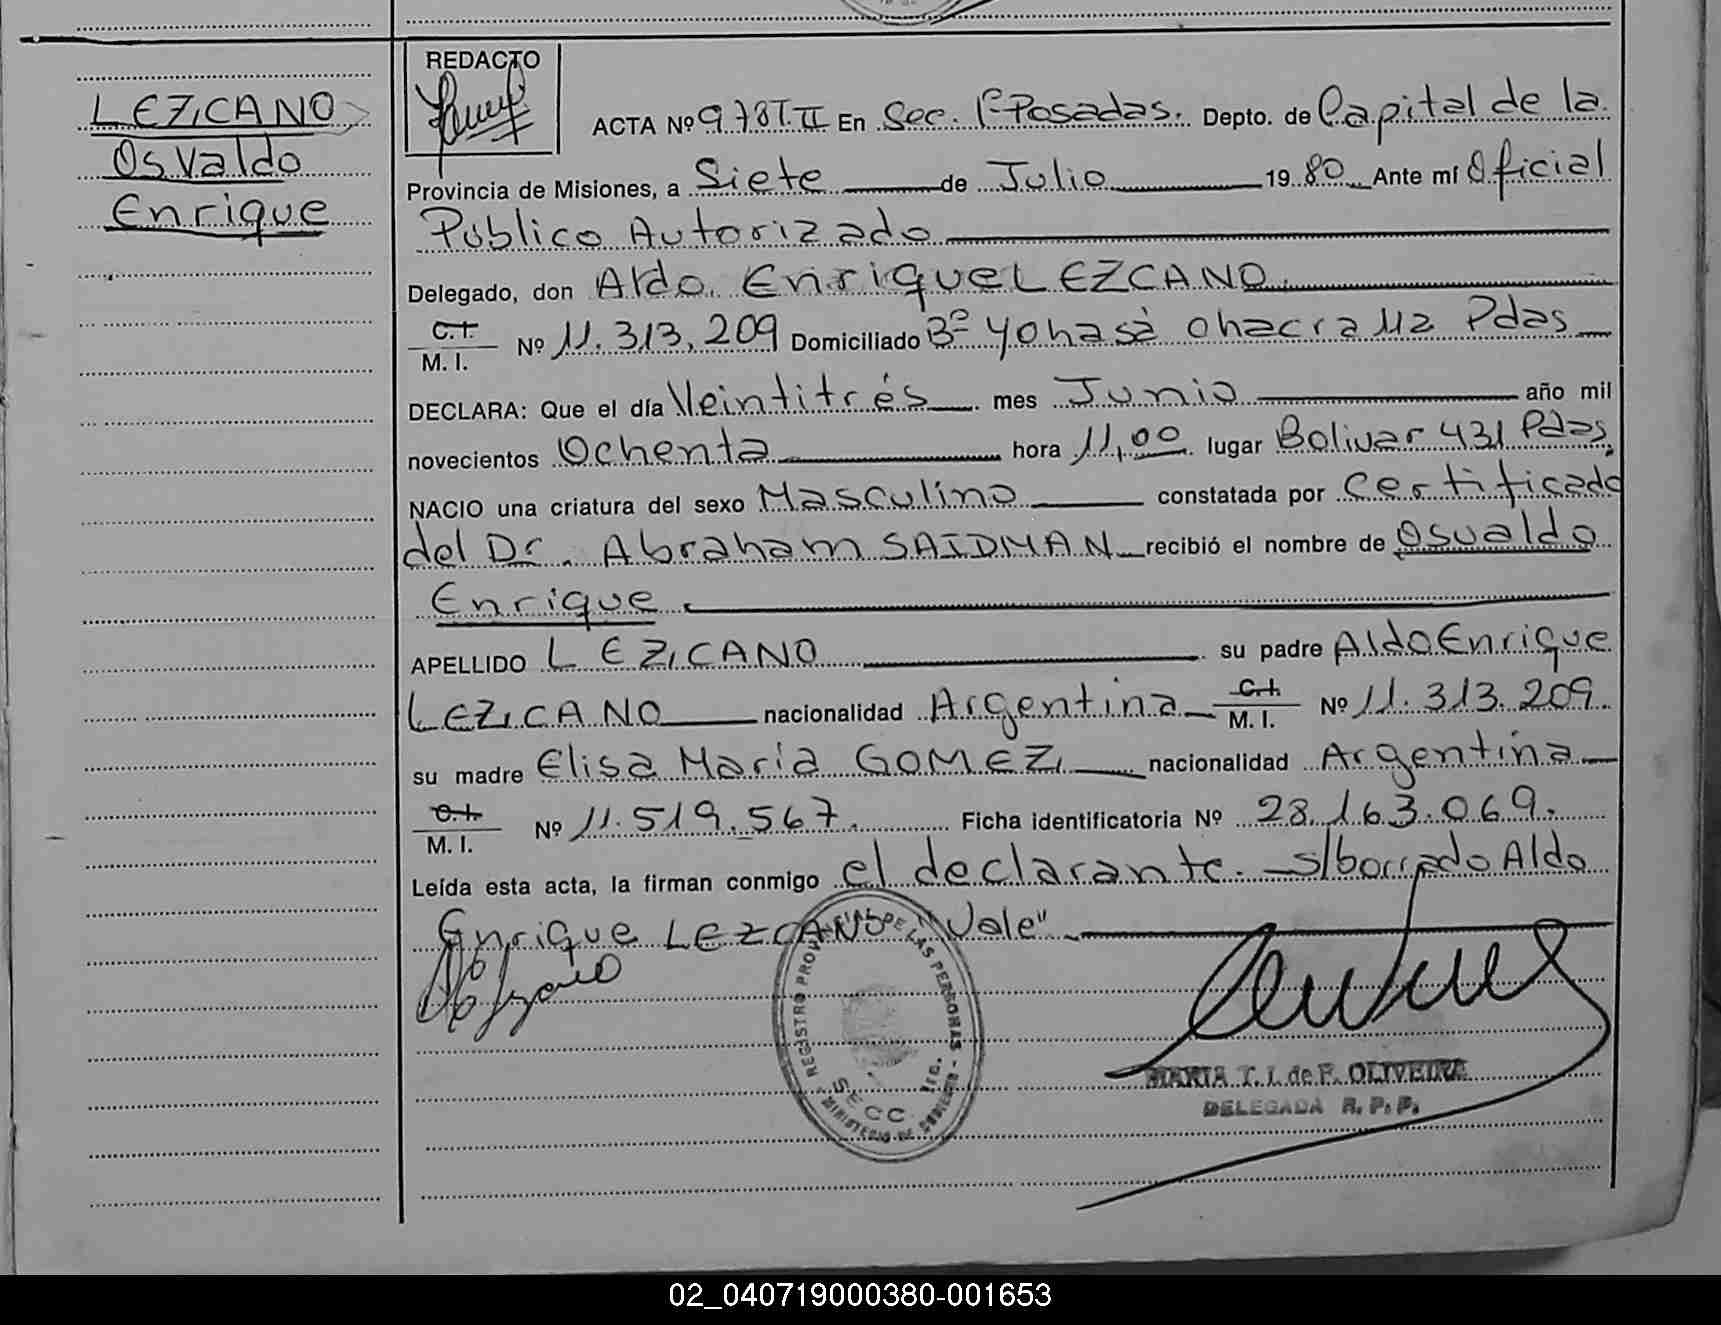 LEZCANO
Osvaldo
Enrique
REDACTO
ACTA Nº 978 T. II En Sec. 1ª Posadas. Depto. de Capital de la
Provincia de Misiones, a Siete de Julio 1980 Ante mí Oficial
Público Autorizado
Delegado, don Aldo Enrique LEZCANO
C.I. M. I. Nº 11.313,209 Domiciliado Bº Yohasá chacra 112 Pdas
DECLARA: Que el día Veintitrés mes Junio año mil
novecientos Ochenta hora 11,00 lugar Bolivar 431 Pdas,
NACIO una criatura del sexo Masculino constatada por Certificado
del Dr. Abraham SAIDMAN recibió el nombre de Osvaldo
Enrique
APELLIDO LEZCANO su padre Aldo Enrique
LEZCANO nacionalidad Argentina C.I. M. I. Nº 11.313.209.
su madre Elisa María GOMEZ nacionalidad Argentina
C.I. M. I. Nº 11.519.567. Ficha identificatoria Nº 28.163.069.
Leída esta acta, la firman conmigo el declarante. s/borrado Aldo
Enrique LEZCANO "Vale"
REGISTRO PROVINCIAL DE LAS PERSONAS
SECC.
MINISTERIO DE GOBIERNO
MARIA T. I. de F. OLIVEIRA
DELEGADA R. P. P.
02_040719000380-001653